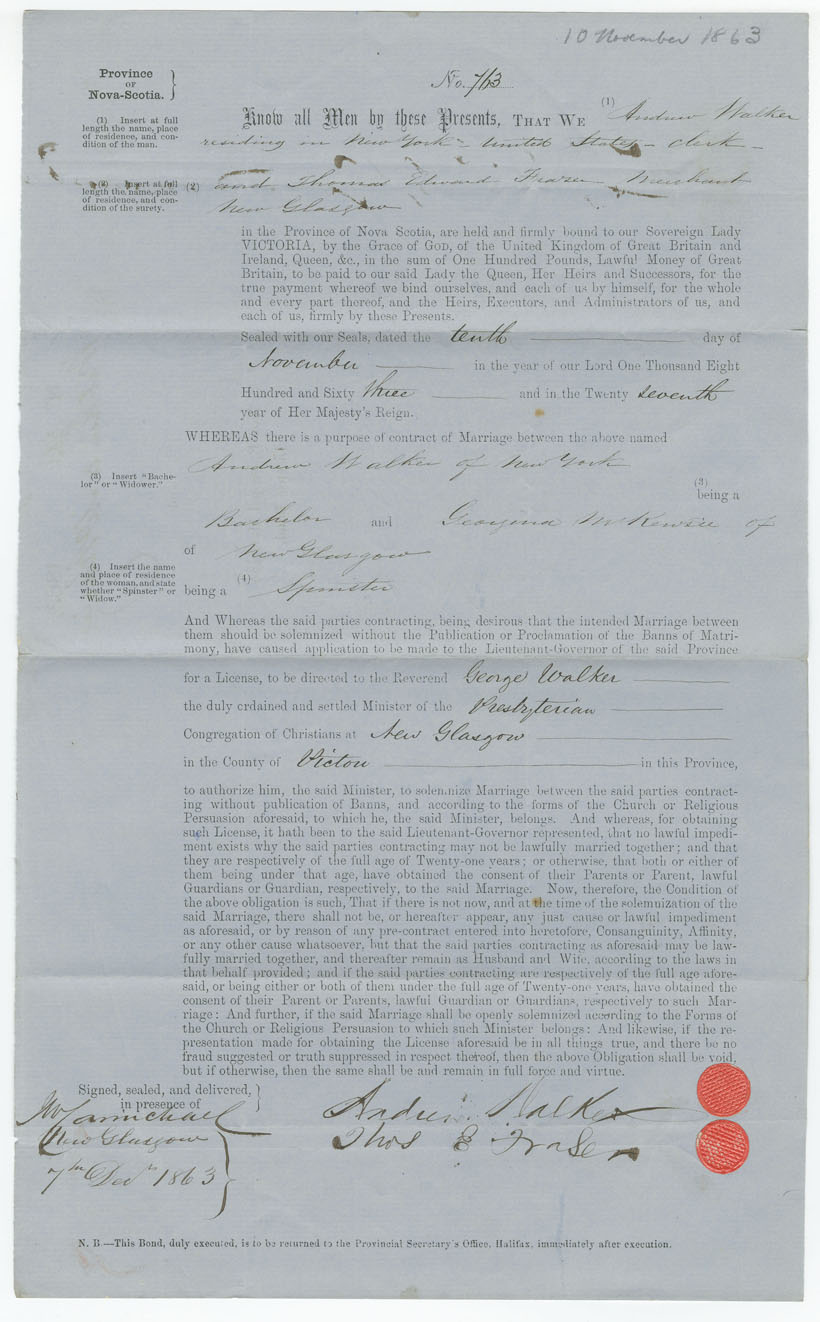 10 November 1863
Province
OF
Nova-Scotia.
No. 763
Know all Men by these Presents, THAT WE (1) Andrew Walker
(1) Insert at full length the name, place of residence, and condition of the man.
residing in New York - United States - Clerk -
(2) Insert at full length the name, place of residence, and condition of the surety.
(2) and Thomas Edward Fraser Merchant
New Glasgow
in the Province of Nova Scotia, are held and firmly bound to our Sovereign Lady
VICTORIA, by the Grace of GOD, of the United Kingdom of Great Britain and
Ireland, Queen, &c., in the sum of One Hundred Pounds, Lawful Money of Great
Britain, to be paid to our said Lady the Queen, Her Heirs and Successors, for the
true payment whereof we bind ourselves, and each of us by himself, for the whole
and every part thereof, and the Heirs, Executors, and Administrators of us, and
each of us, firmly by these Presents.
Sealed with our Seals, dated the tenth day of
November in the year of our Lord One Thousand Eight
Hundred and Sixty three and in the Twenty seventh
year of Her Majesty's Reign.
WHEREAS there is a purpose of contract of Marriage between the above named
Andrew Walker of New York
(3) Insert "Bachelor" or "Widower."
(3)
being a
Bachelor and Georgina McKenzie of
of New Glasgow
(4) Insert the name and place of residence of the woman, and state whether "Spinster" or "Widow."
being a (4) Spinster
And Whereas the said parties contracting, being desirous that the intended Marriage between
them should be solemnized without the Publication or Proclamation of the Banns of Matri-
mony, have caused application to be made to the Lieutenant-Governor of the said Province
for a License, to be directed to the Reverend George Walker
the duly ordained and settled Minister of the Presbyterian
Congregation of Christians at New Glasgow
in the County of Pictou in this Province,
to authorize him, the said Minister, to solemnize Marriage between the said parties contract-
ing without publication of Banns, and according to the forms of the Church or Religious
Persuasion aforesaid, to which he, the said Minister, belongs. And whereas, for obtaining
such License, it hath been to the said Lieutenant-Governor represented, that no lawful impedi-
ment exists why the said parties contracting may not be lawfully married together; and that
they are respectively of the full age of Twenty-one years; or otherwise, that both or either of
them being under that age, have obtained the consent of their Parents or Parent, lawful
Guardians or Guardian, respectively, to the said Marriage. Now, therefore, the Condition of
the above obligation is such, That if there is not now, and at the time of the solemnization of the
said Marriage, there shall not be, or hereafter appear, any just cause or lawful impediment
as aforesaid, or by reason of any pre-contract entered into heretofore, Consanguinity, Affinity,
or any other cause whatsoever, but that the said parties contracting as aforesaid may be law-
fully married together, and thereafter remain as Husband and Wife, according to the laws in
that behalf provided; and if the said parties contracting are respectively of the full age afore-
said, or being either or both of them under the full age of Twenty-one years, have obtained the
consent of their Parent or Parents, lawful Guardian or Guardians, respectively to such Mar-
riage: And further, if the said Marriage shall be openly solemnized according to the Forms of
the Church or Religious Persuasion to which such Minister belongs: And likewise, if the re-
presentation made for obtaining the License aforesaid be in all things true, and there be no
fraud suggested or truth suppressed in respect thereof, then the above Obligation shall be void,
but if otherwise, then the same shall be and remain in full force and virtue.
Signed, sealed, and delivered,
in presence of
Carmichael
New Glasgow
7th Decr 1863
Andrew Walker
Thos E Fraser
N. B.—This Bond, duly executed, is to be returned to the Provincial Secretary's Office, Halifax, immediately after execution.